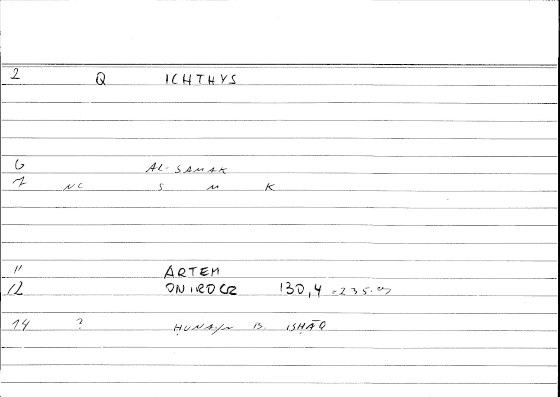 2 Q ICHTHYS
6 AL-SAMAK
7 NC S M K
11 ARTEM
12 ONIROCR 130,4 =235.
14 ? ḤUNAYN B. ISḤĀQ